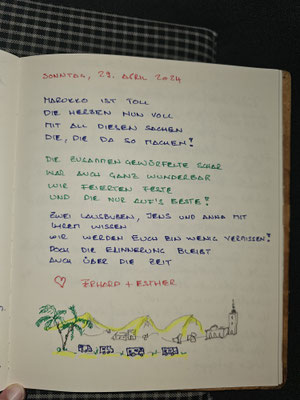 SONNTAG, 28. APRIL 2024
MAROKKO IST TOLL
DIE HERZEN NUN VOLL
MIT ALL DIESEN SACHEN
DIE, DIE DA SO MACHEN!
DIE ZUSAMMENGEWÜRFELTE SCHAR
WAR AUCH GANZ WUNDERBAR
WIR FEIERTEN FESTE
UND DIE NUR AUF'S BESTE!
ZWEI LAUSBUBEN, JENS UND ANNA MIT
IHREM WISSEN
WIR WERDEN EUCH EIN WENIG VERMISSEN!
DOCH DIE ERINNERUNG BLEIBT
AUCH ÜBER DIE ZEIT
ERHARD + ESTHER